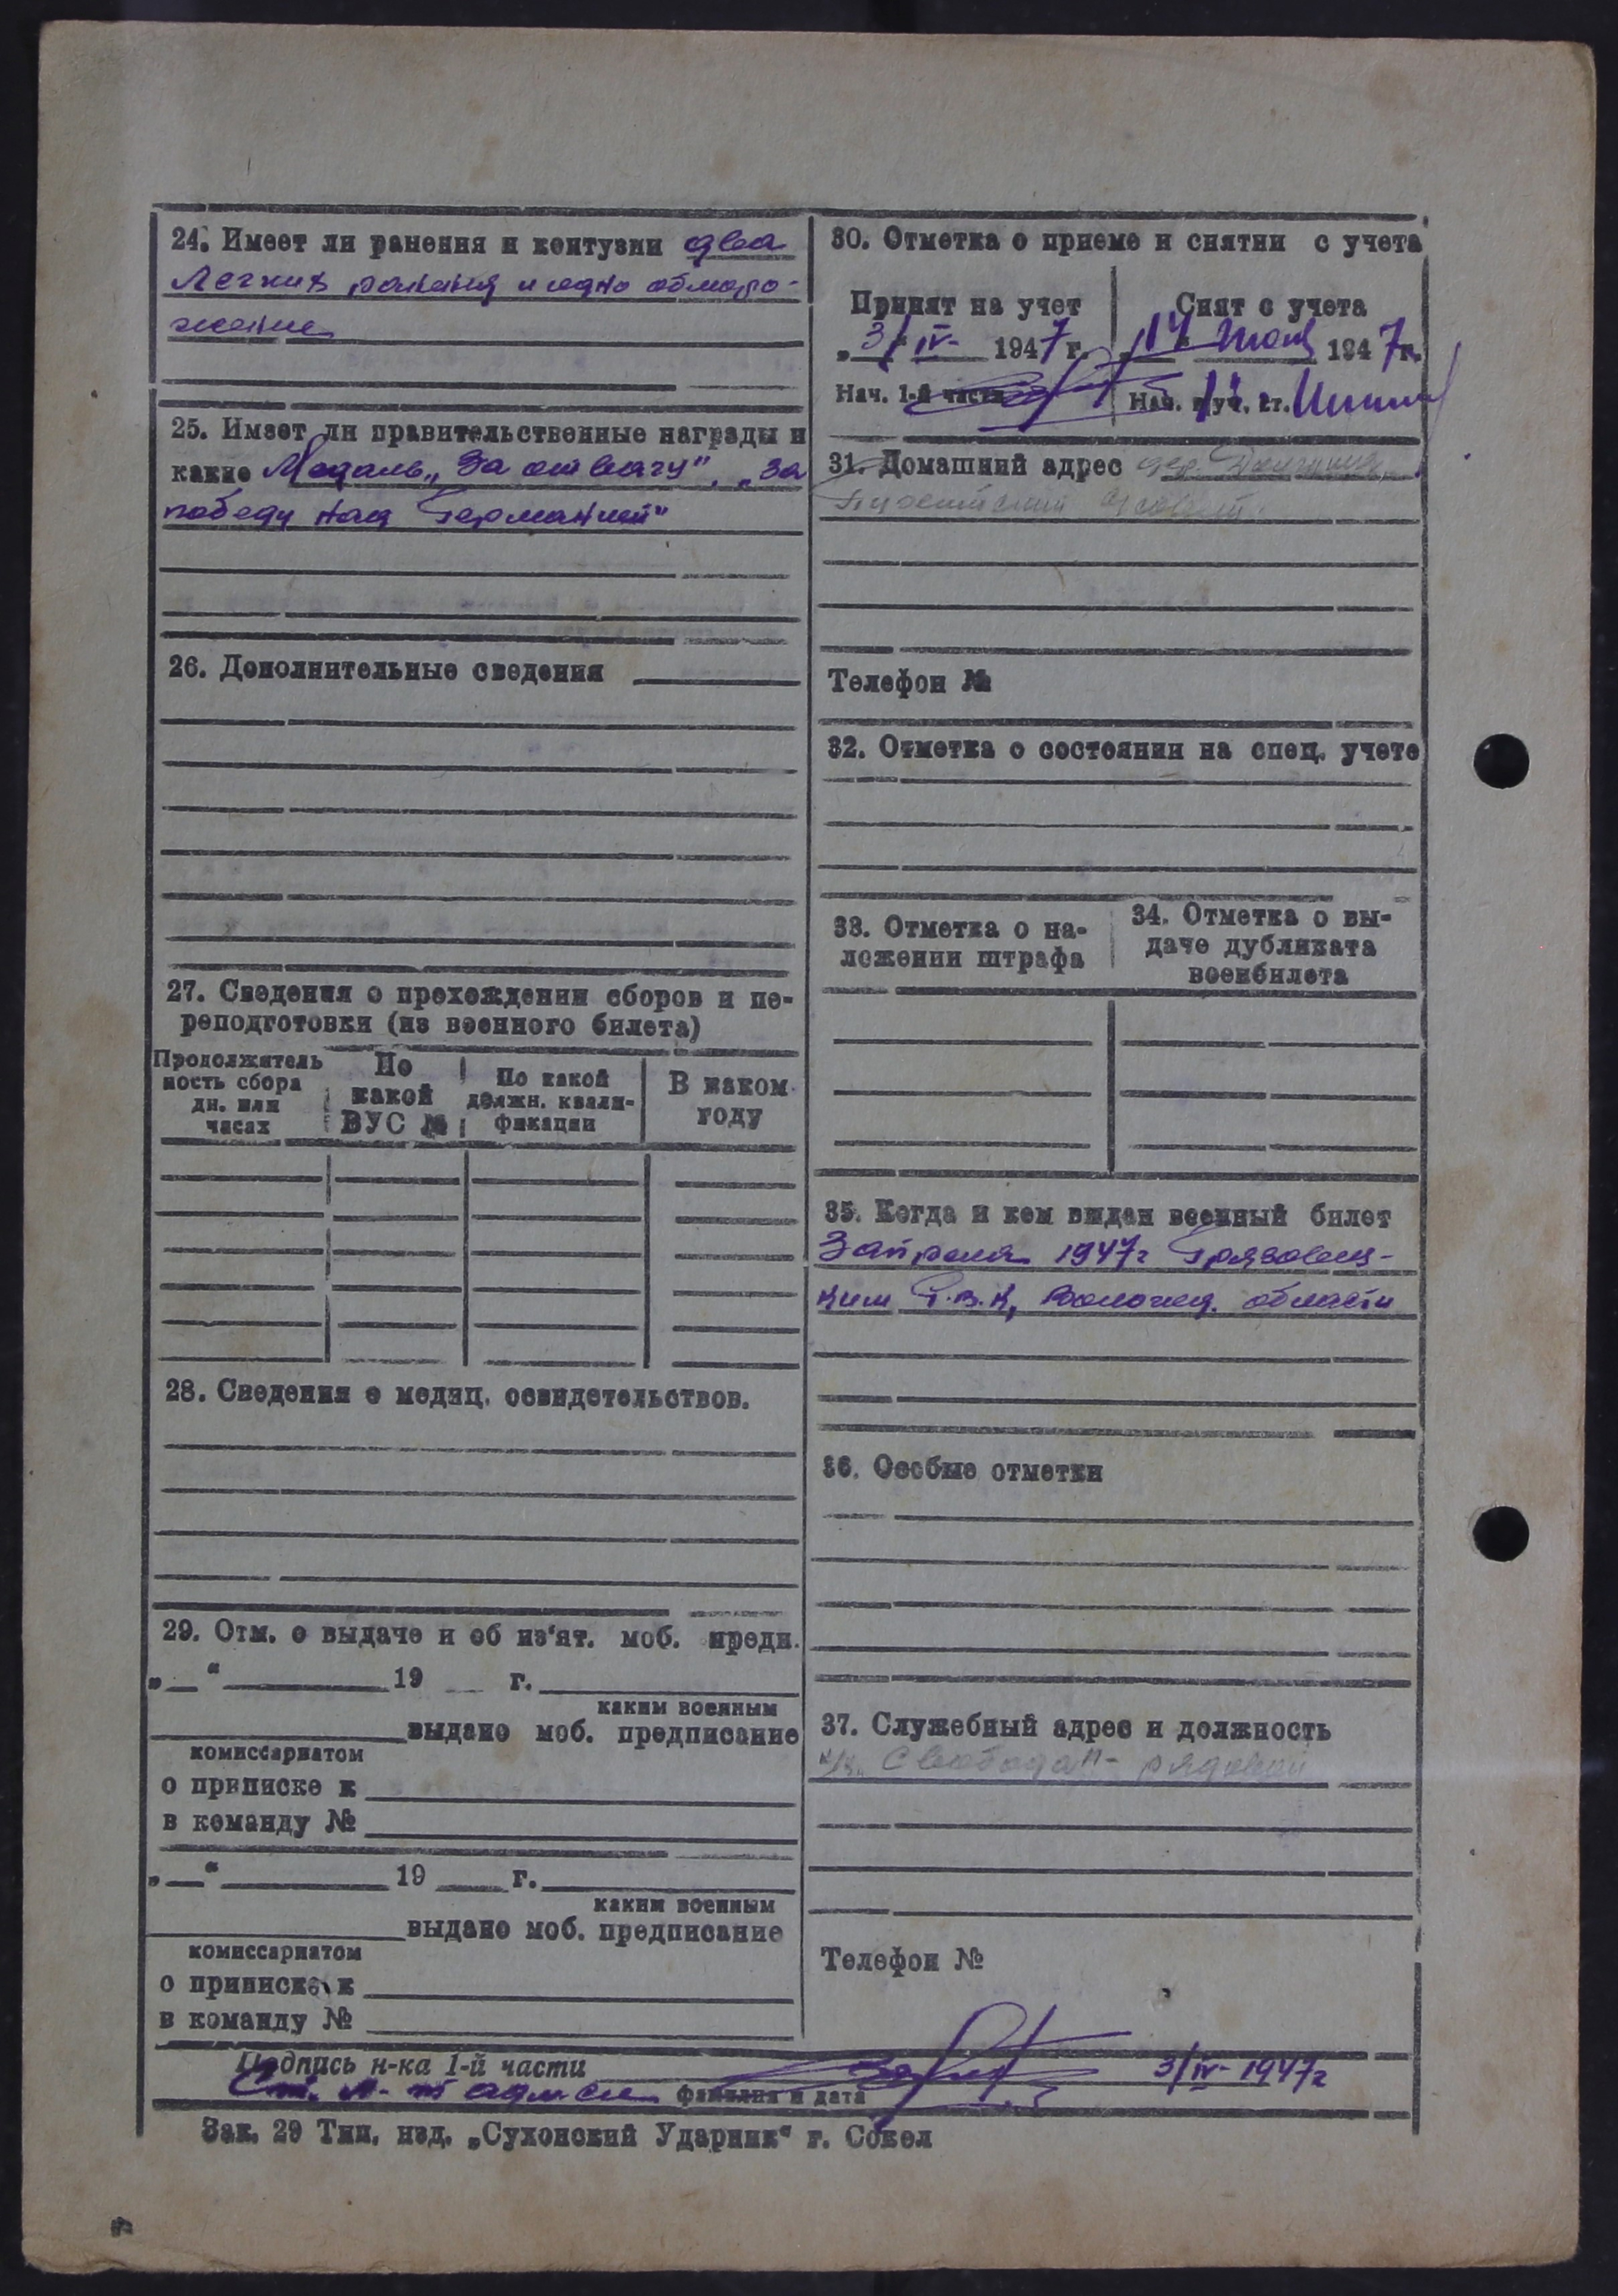 24. Имеет ли ранения и контузии два
легких ранения и одно обморо-
жение
25. Имеет ли правительственные награды и
какие Медаль „За отвагу", „За
победу над Германией"
26. Дополнительные сведения
27. Сведения о прохождении сборов и пе-
реподготовки (из военного билета)
Продолжитель
ность сбора
дн. или
часах
По
какой
ВУС №
По какой
должн. квали-
фикации
В каком
году
28. Сведения о медиц. освидетельствов.
29. Отм. о выдаче и об из'ят. моб. предп.
„__" 19 __ г.
каким военным
выдано моб. предписание
комиссариатом
о приписке к
в команду №
„__" 19 __ г.
каким военным
выдано моб. предписание
комиссариатом
о приписке к
в команду №
30. Отметка о приеме и снятии с учета
Принят на учет
„3/IV- 1947 г.
Нач. 1-й части
Снят с учета
1947 г.
31. Домашний адрес дер.
Телефон №
32. Отметка о состоянии на спец. учете
33. Отметка о на-
ложении штрафа
34. Отметка о вы-
даче дубликата
военбилета
35. Когда и кем выдан военный билет
3 апреля 1947г Грязовец-
ким Р.В.К, Вологод. области
36. Особые отметки
37. Служебный адрес и должность
к/з „Свобода"- рядовой
Телефон №
Подпись н-ка 1-й части 3/IV- 1947г
Ст. л-т адм сл фамилия и дата
Зак. 29 Тип. изд. „Сухонский Ударник" г. Сокол